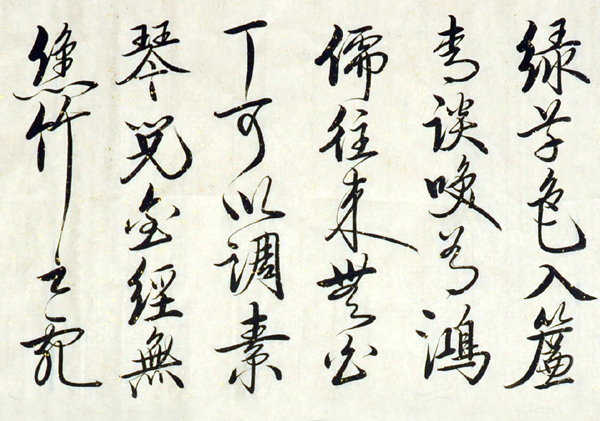 緑草色入簾
青談咲有鴻
儒往来無白
丁可以調素
琴閲金經無
絲竹之亂